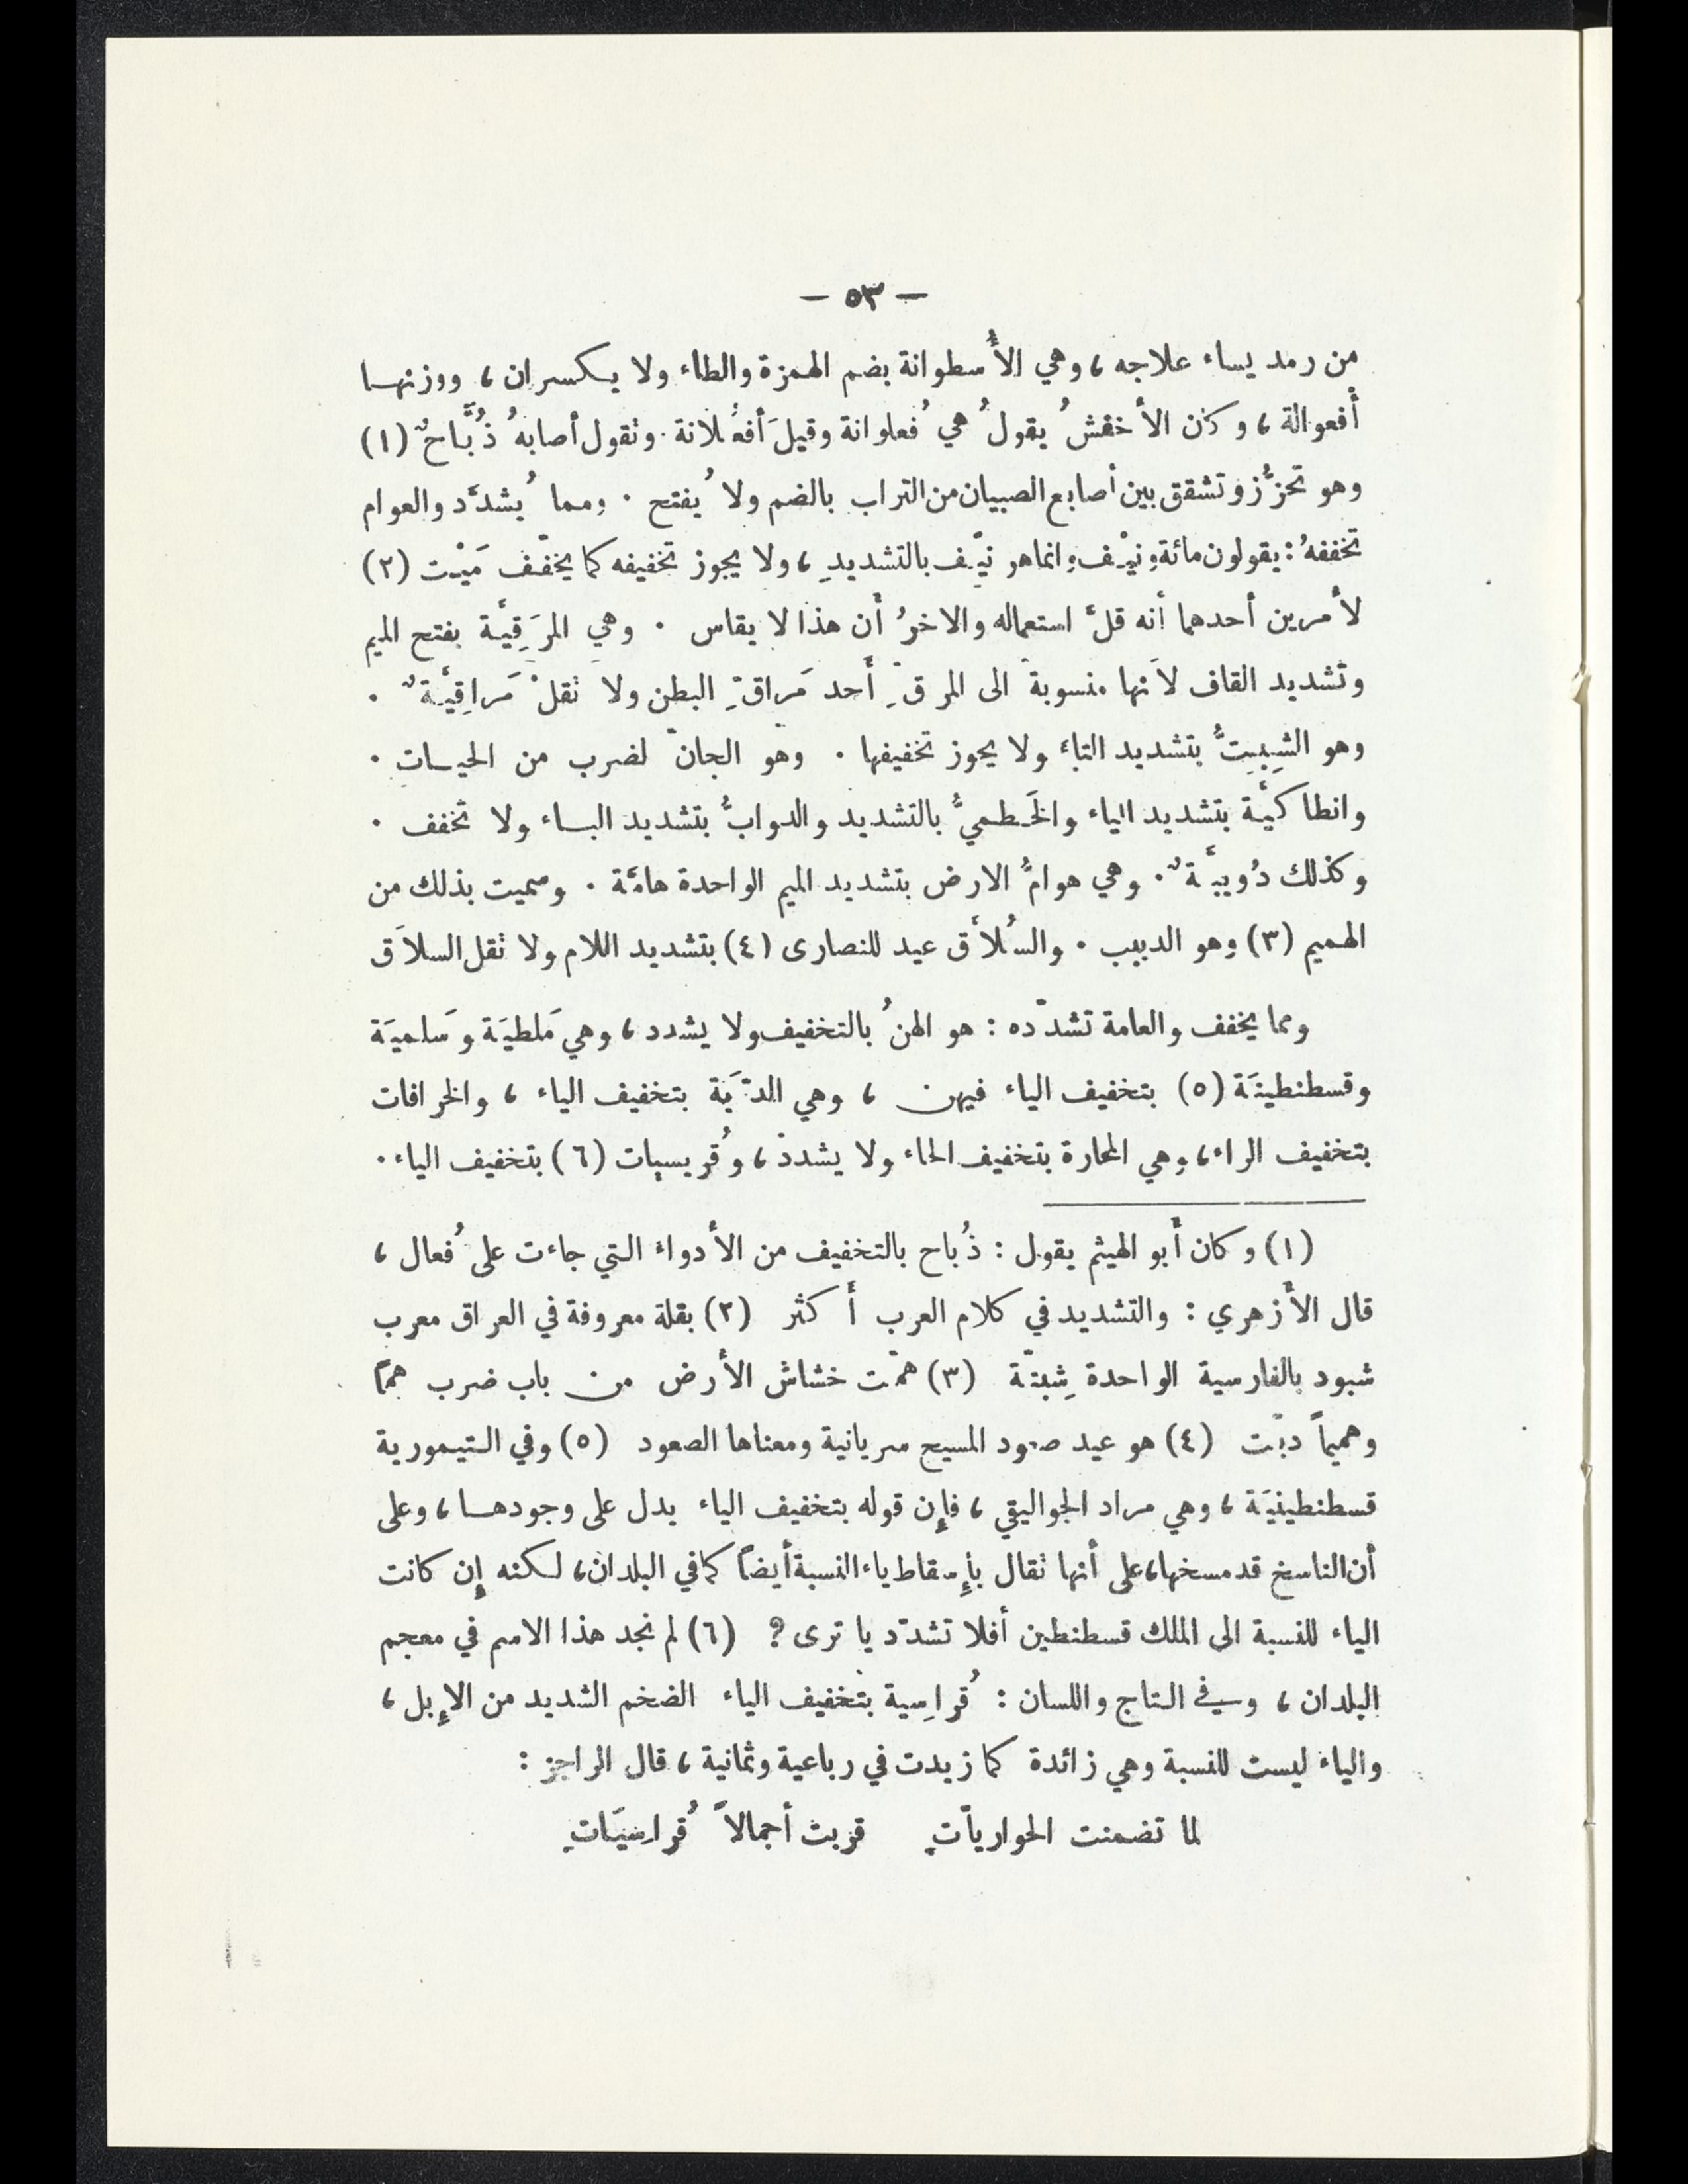 — ٥٣ —
من رمد يساء علاجه ، وهي الأُسطوانة بضم الهمزة والطاء ولا يكسران ، ووزنها
أُفعوالة ، وكان الأخفشُ يقولُ هي فُعلوانة وقيلَ أفعُلانة . وتقول أصابهُ ذُبَّاحٌ (١)
وهو تحزُّز وتشقق بين أصابع الصبيان من التراب بالضم ولا يُفتح . ومما يُشدَّد والعوام
تخففهُ : يقولون مائة ونيْف وانما هو نيّف بالتشديدِ ، ولا يجوز تخفيفه كما يخفّف مَيْت (٢)
لأمرين أحدهما أنه قلَّ استعماله والاخرُ أن هذا لا يقاس . وهي المَرَقِيَّة بفتح الميم
وتشديد القاف لأنها منسوبة الى المرقِّ أَحد مَراقِّ البطن ولا تقلْ مَراقِيَّةٌ .
وهو الشِبِتُّ بتشديد التاء ولا يجوز تخفيفها . وهو الجانّ لضرب من الحيات .
وانطاكيَّة بتشديد الياء والخَطميُّ بالتشديد والدوابُّ بتشديد الباء ولا تخفف .
وكذلك دُويبَّةٌ . وهي هوامُّ الارض بتشديد الميم الواحدة هامَّة . وسميت بذلك من
الهميم (٣) وهو الدبيب . والسُلاَّق عيد للنصارى (٤) بتشديد اللام ولا تقل السلاَق
ومما يخفف والعامة تشدّده : هو الهنُ بالتخفيف ولا يشدد ، وهي مَلطيَة وسَلميَة
وقسطنطينَة (٥) بتخفيف الياء فيهن ، وهي الديَة بتخفيف الياء ، والخرافات
بتخفيف الراء ، وهي المحارة بتخفيف الحاء ولا يشدد ، وقُريسيات (٦) بتخفيف الياء .
(١) وكان أبو الهيثم يقول : ذُباح بالتخفيف من الأدواء التي جاءت على فُعال ،
قال الأزهري : والتشديد في كلام العرب أكثر (٢) بقلة معروفة في العراق معرب
شبود بالفارسية الواحدة شِبتّة (٣) همّت خشاش الأرض من باب ضرب همًّا
وهميماً دبّت (٤) هو عيد صعود المسيح سريانية ومعناها الصعود (٥) وفي التيمورية
قسطنطينيَة ، وهي مراد الجواليقي ، فإن قوله بتخفيف الياء يدل على وجودها ، وعلى
أن الناسخ قد مسخها ، على أنها تقال بإسقاط ياء النسبة أيضاً كما في البلدان ، لكنه إن كانت
الياء للنسبة الى الملك قسطنطين أفلا تشدّد يا ترى ? (٦) لم نجد هذا الاسم في معجم
البلدان ، وفي التاج واللسان : قُراسِية بتخفيف الياء الضخم الشديد من الإبل ،
والياء ليست للنسبة وهي زائدة كما زيدت في رباعية وثمانية ، قال الراجز :
لما تضمنت الحوارياتِ قربت أجمالاً قُراسِيَاتِ